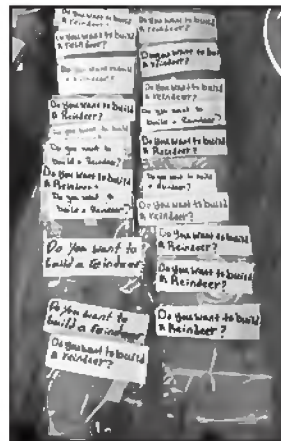 Do you want to build
a reindeer?
Do you want to build
a reindeer?
Do you want to build
a reindeer?
Do you want to build
a Reindeer?
Do you want to build
a reindeer?
Do you want to
build a Reindeer?
Do you want to build
a Reindeer?
Do you want to
build a Reindeer?
Do you want to
build a Reindeer
Do you want to
build a Reindeer
Do you want to build
a reindeer?
Do you want to build
a reindeer?
Do you want to build
a Reindeer?
Do you want to build
a reindeer?
Do you want to
build a Reindeer?
Do you want to build
a Reindeer?
Do you want to build
a Reindeer?
Do you want to build
a reindeer?
Do you want to build
a Reindeer?
Do you want to build
a Reindeer?
Do you want to build
a Reindeer?